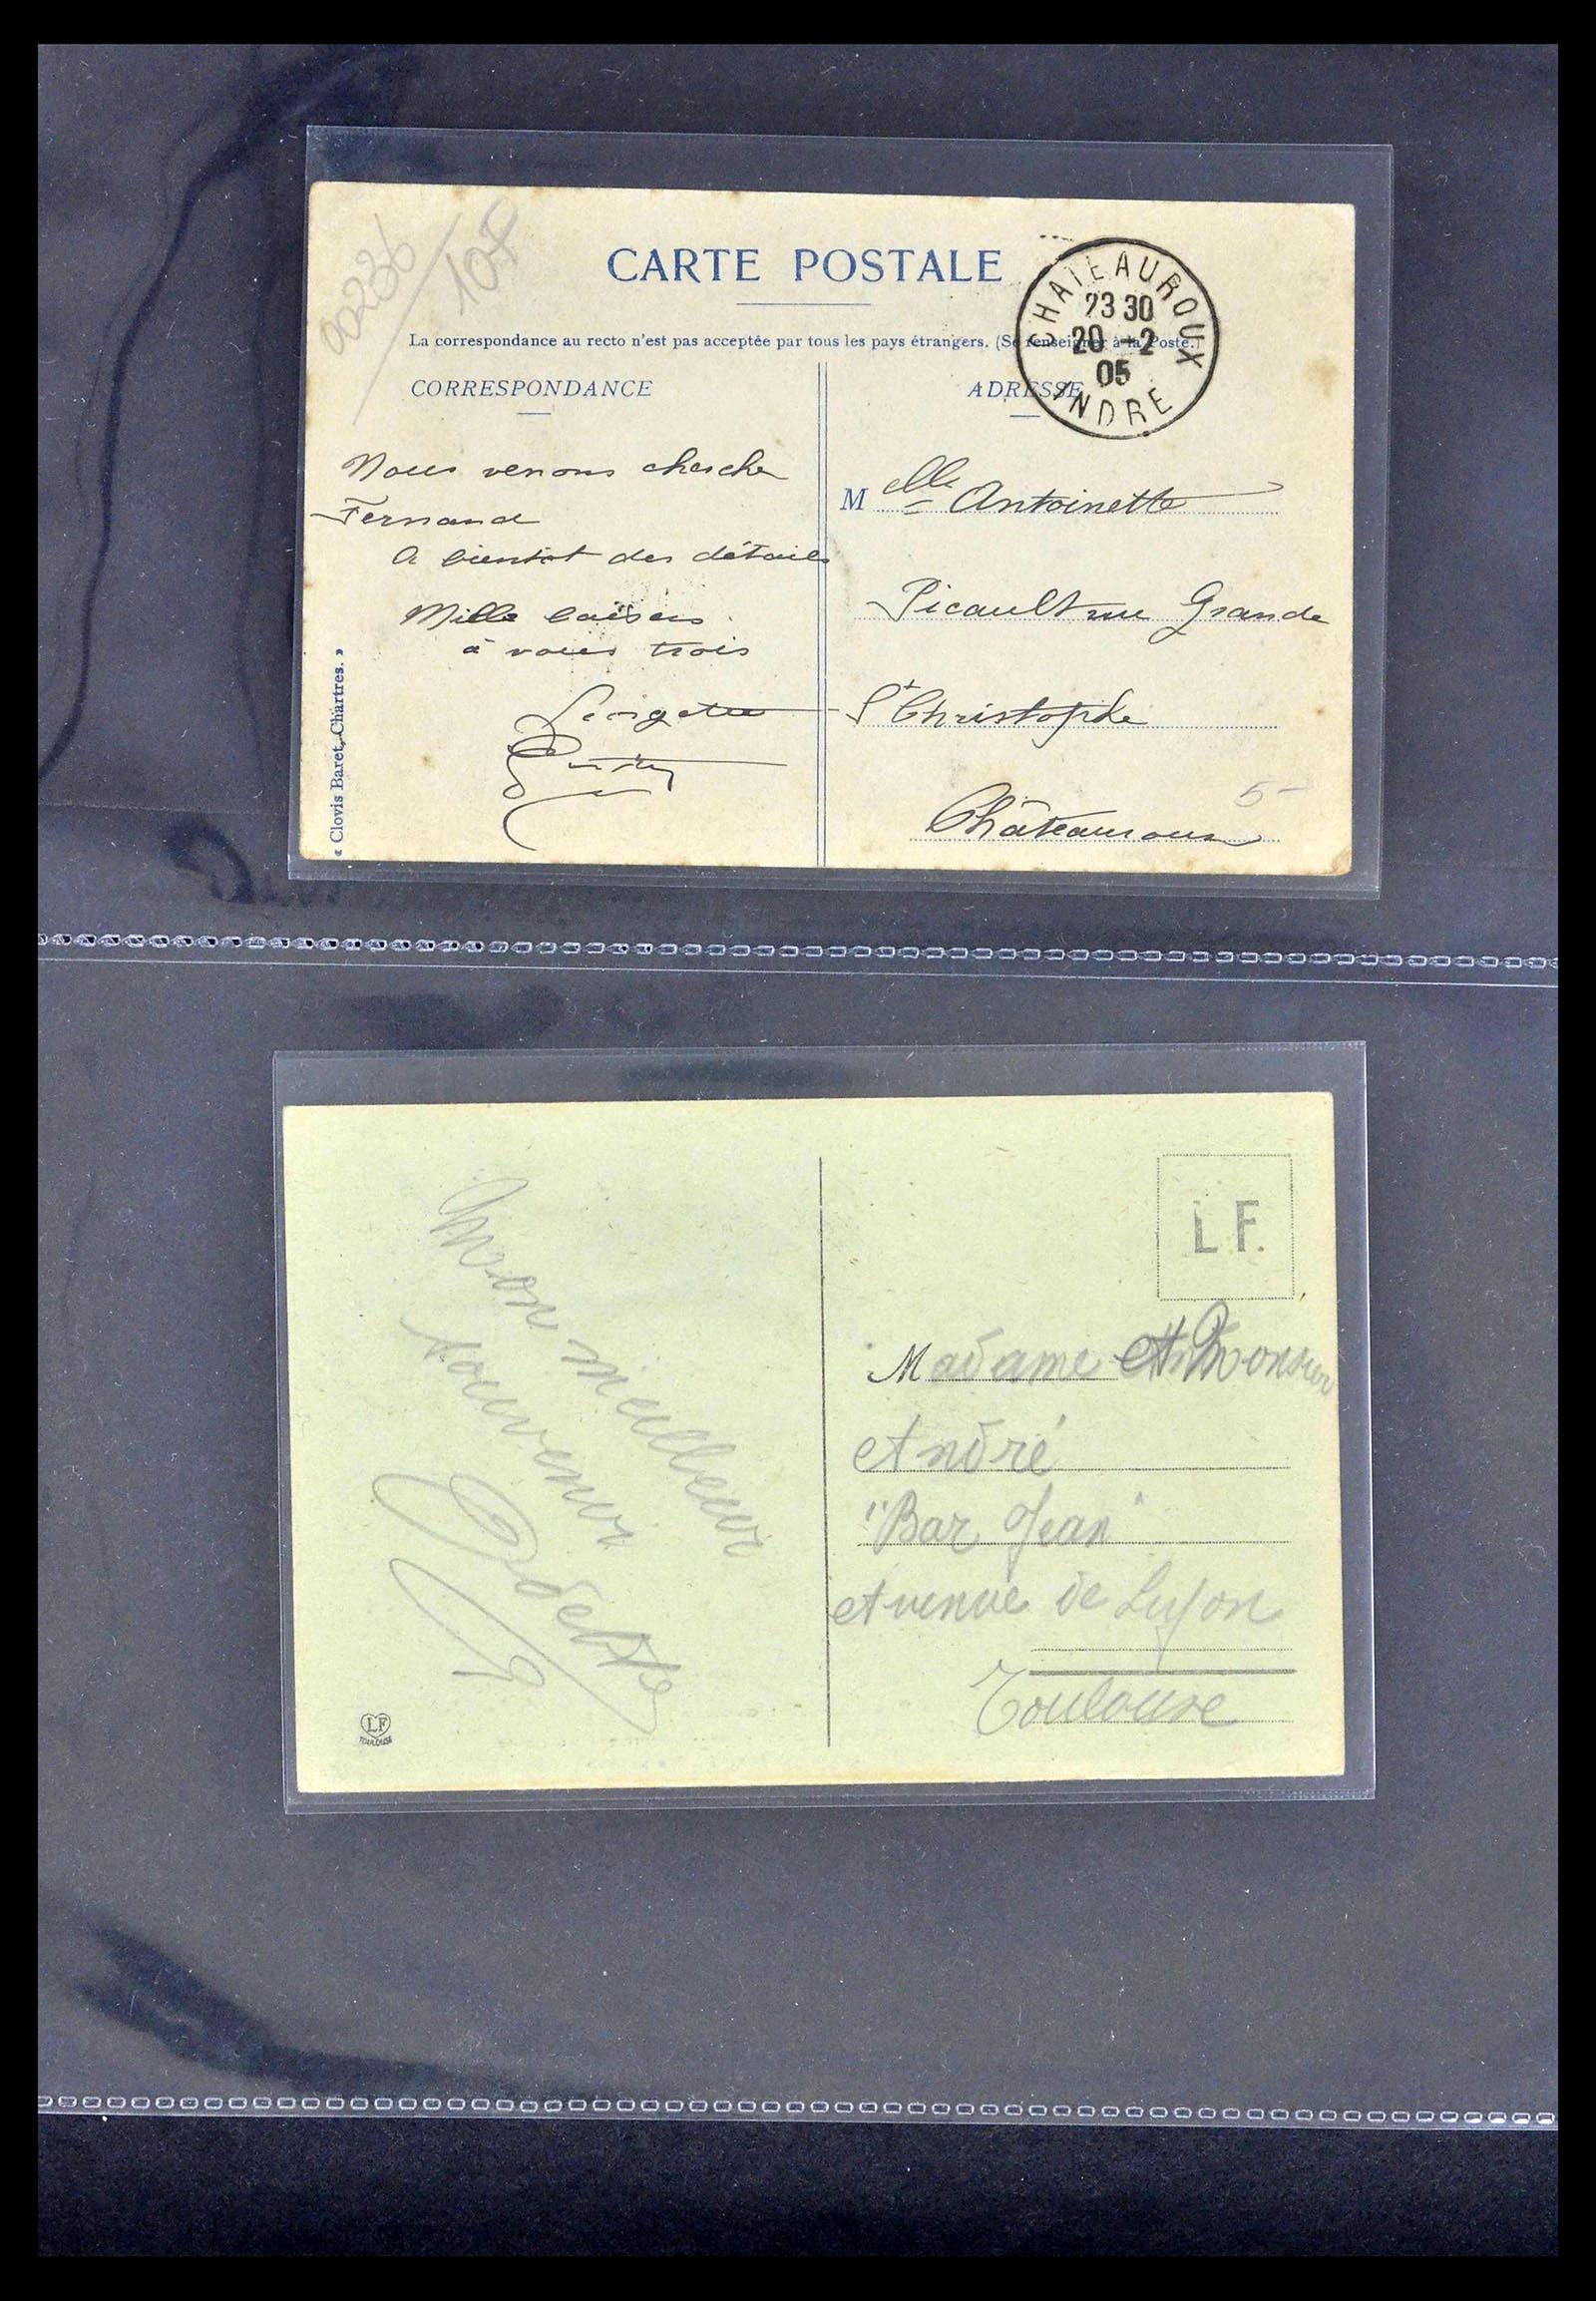 00236
10F
CARTE POSTALE
La correspondance au recto n'est pas acceptée par tous les pays étrangers. (Se renseigner à la Poste.)
CHATEAUROUX
23 30
20 -2
05
INDRE
CORRESPONDANCE
Nous venons cherche
Fernand
A bientot des détails
Mille baisers
à vous trois
Georgette
« Clovis Baret, Chartres. »
ADRESSE
Melle Antoinette
Picault rue Grande
St Christophe
Châteauroux
5-
Mon meilleur
souvenir
Odette
LF
TOULOUSE
L F.
Madame et Monsieur
André
"Bar Jean"
Avenue de Lyon
Toulouse